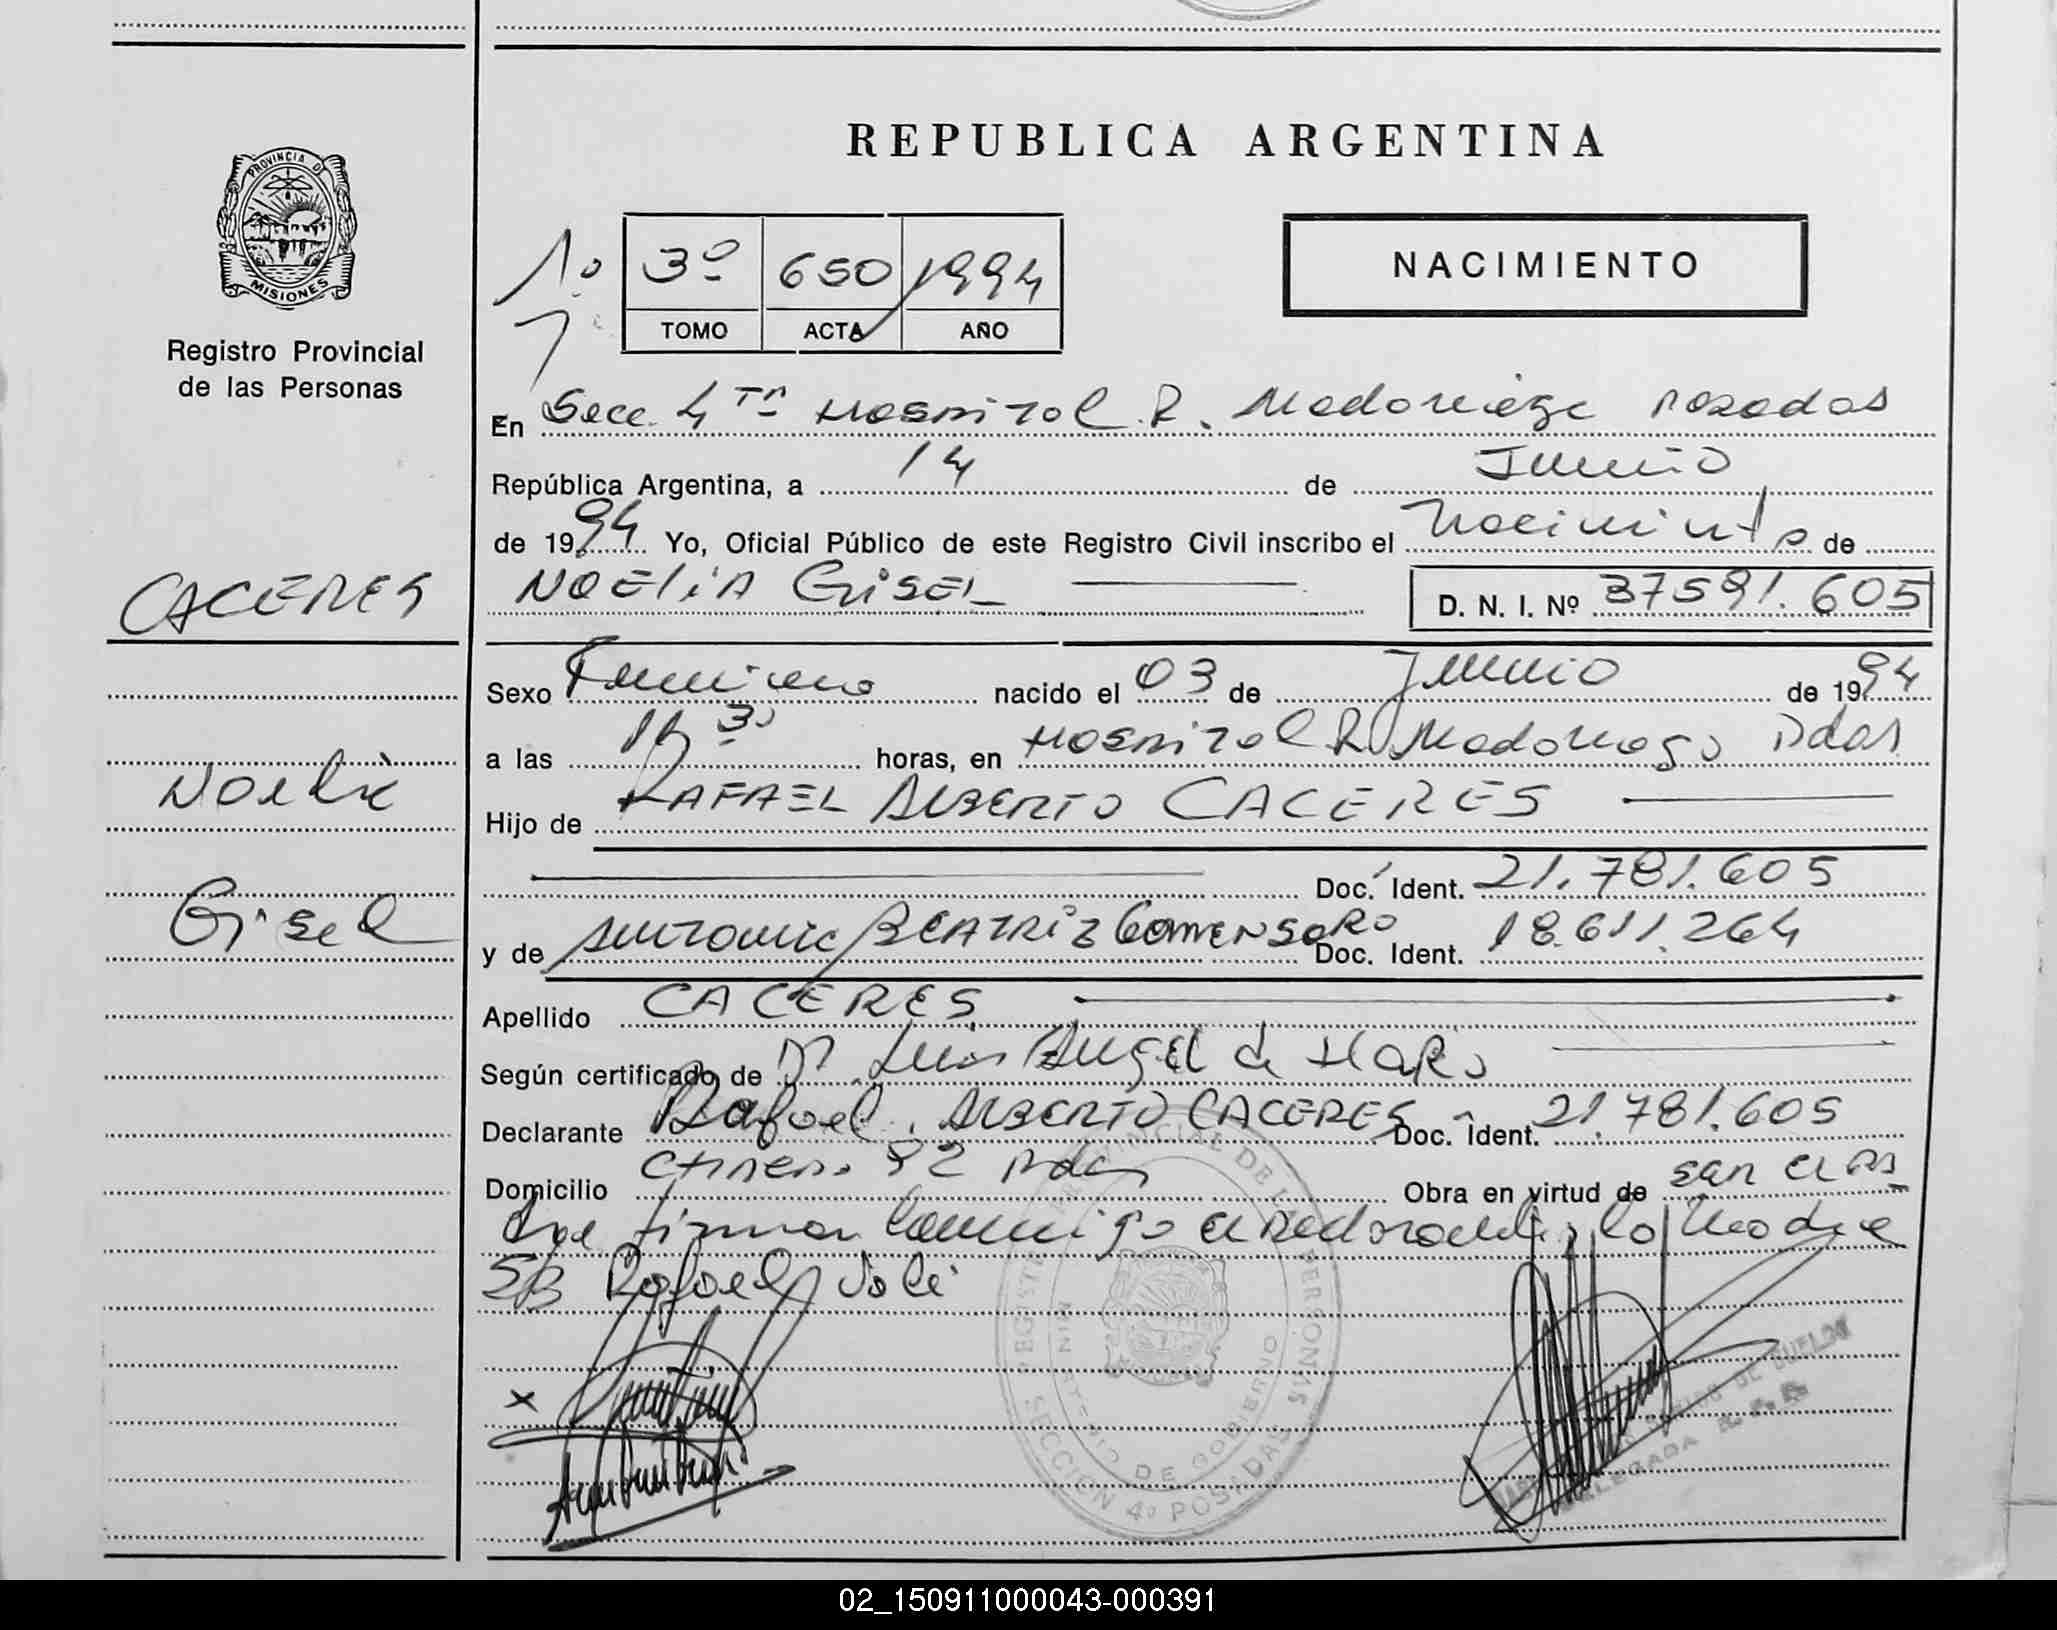 REPUBLICA ARGENTINA
PROVINCIA D
MISIONES
Registro Provincial
de las Personas
1º 3º 650 1994
TOMO ACTA AÑO
NACIMIENTO
En Secc. 4ta Hospital R. Madariaga Posadas
República Argentina, a 14 de Junio
de 1994 Yo, Oficial Público de este Registro Civil inscribo el Nacimiento de
CACERES
NOELIA GISEL D. N. I. Nº 37591.605
Sexo Femenino nacido el 03 de Junio de 1994
a las horas, en Hospital R Madariaga Pdas
Noelia
Hijo de RAFAEL ALBERTO CACERES
Doc. Ident. 21.781.605
Gisel
y de Antonia BEATRIZ GOMENSORO Doc. Ident. 18.611.264
Apellido CACERES
Según certificado de Dr Luis Angel de Haro
Declarante Rafael ALBERTO CACERES Doc. Ident. 21.781.605
Domicilio 92 Pdas Obra en virtud de
firman conmigo el declarante y la Madre
Rafael Vale
REGISTRO PROVINCIAL DE LAS PERSONAS
MINISTERIO DE GOBIERNO
MISIONES
SECCION 4ª POSADAS
DE DUELOS
DELEGADA R. P. P.
02_150911000043-000391